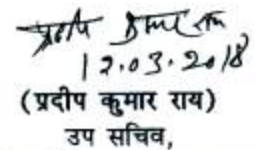 प्रदीप कुमार राय
12.03.2018
(प्रदीप कुमार राय)
उप सचिव,